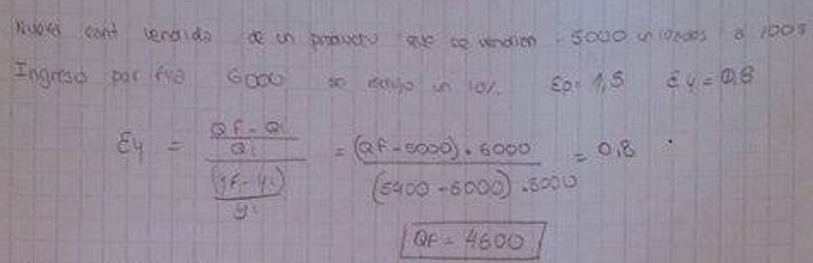 Nueva cant vendida de un producto que se vendían 5000 unidades a 100$
Ingreso por flia 6000 se redujo un 10%. Ep= 1,5 Ey = 0,8
Ey = \frac{\frac{Qf - Qi}{Qi}}{\frac{(yf - yi)}{yi}} = \frac{(Qf - 5000) . 6000}{(5400 - 6000) . 5000} = 0,8
Qf = 4600